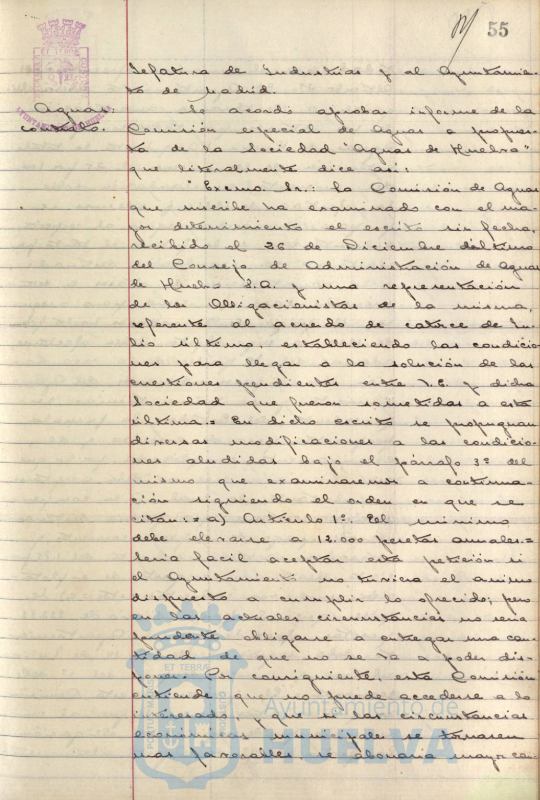 55
Jefatura de Industrias y al Ayuntamien-
to de Madrid.
Aguas: contrato.
Se acordó aprobar informe de la
Comisión especial de Aguas a propues-
ta de la Sociedad "Aguas de Huelva"
que literalmente dice así:
"Excmo. Sr.: La Comisión de Aguas
que suscribe ha examinado con el ma-
yor detenimiento el escrito sin fecha,
recibido el 26 de Diciembre último
del Consejo de Administración de Aguas
de Huelva S.A. y una representación
de los Obligacionistas de la misma,
referente al acuerdo de catorce de Ju-
lio último, estableciendo las condicio-
nes para llegar a la solución de las
cuestiones pendientes entre V.E. y dicha
Sociedad que fueron sometidas a esta
última.= En dicho escrito se propugnan
diversas modificaciones a las condicio-
nes aludidas bajo el párrafo 3º del
mismo que examinaremos a continua-
ción siguiendo el orden en que se
citan:= a) Artículo 1º. El mínimo
debe elevarse a 12.000 pesetas anuales.=
Sería fácil aceptar esta petición si
el Ayuntamiento no tuviera el ánimo
dispuesto a cumplir lo ofrecido; pero
en las actuales circunstancias no sería
prudente obligarse a entregar una can-
tidad de que no se va a poder dis-
poner. Por consiguiente, esta Comisión
entiende que no puede accederse a lo
interesado, y que si las circunstancias
económicas municipales se tornasen
mas favorables se abonaría mayor can-
Ayuntamiento de
HUELVA